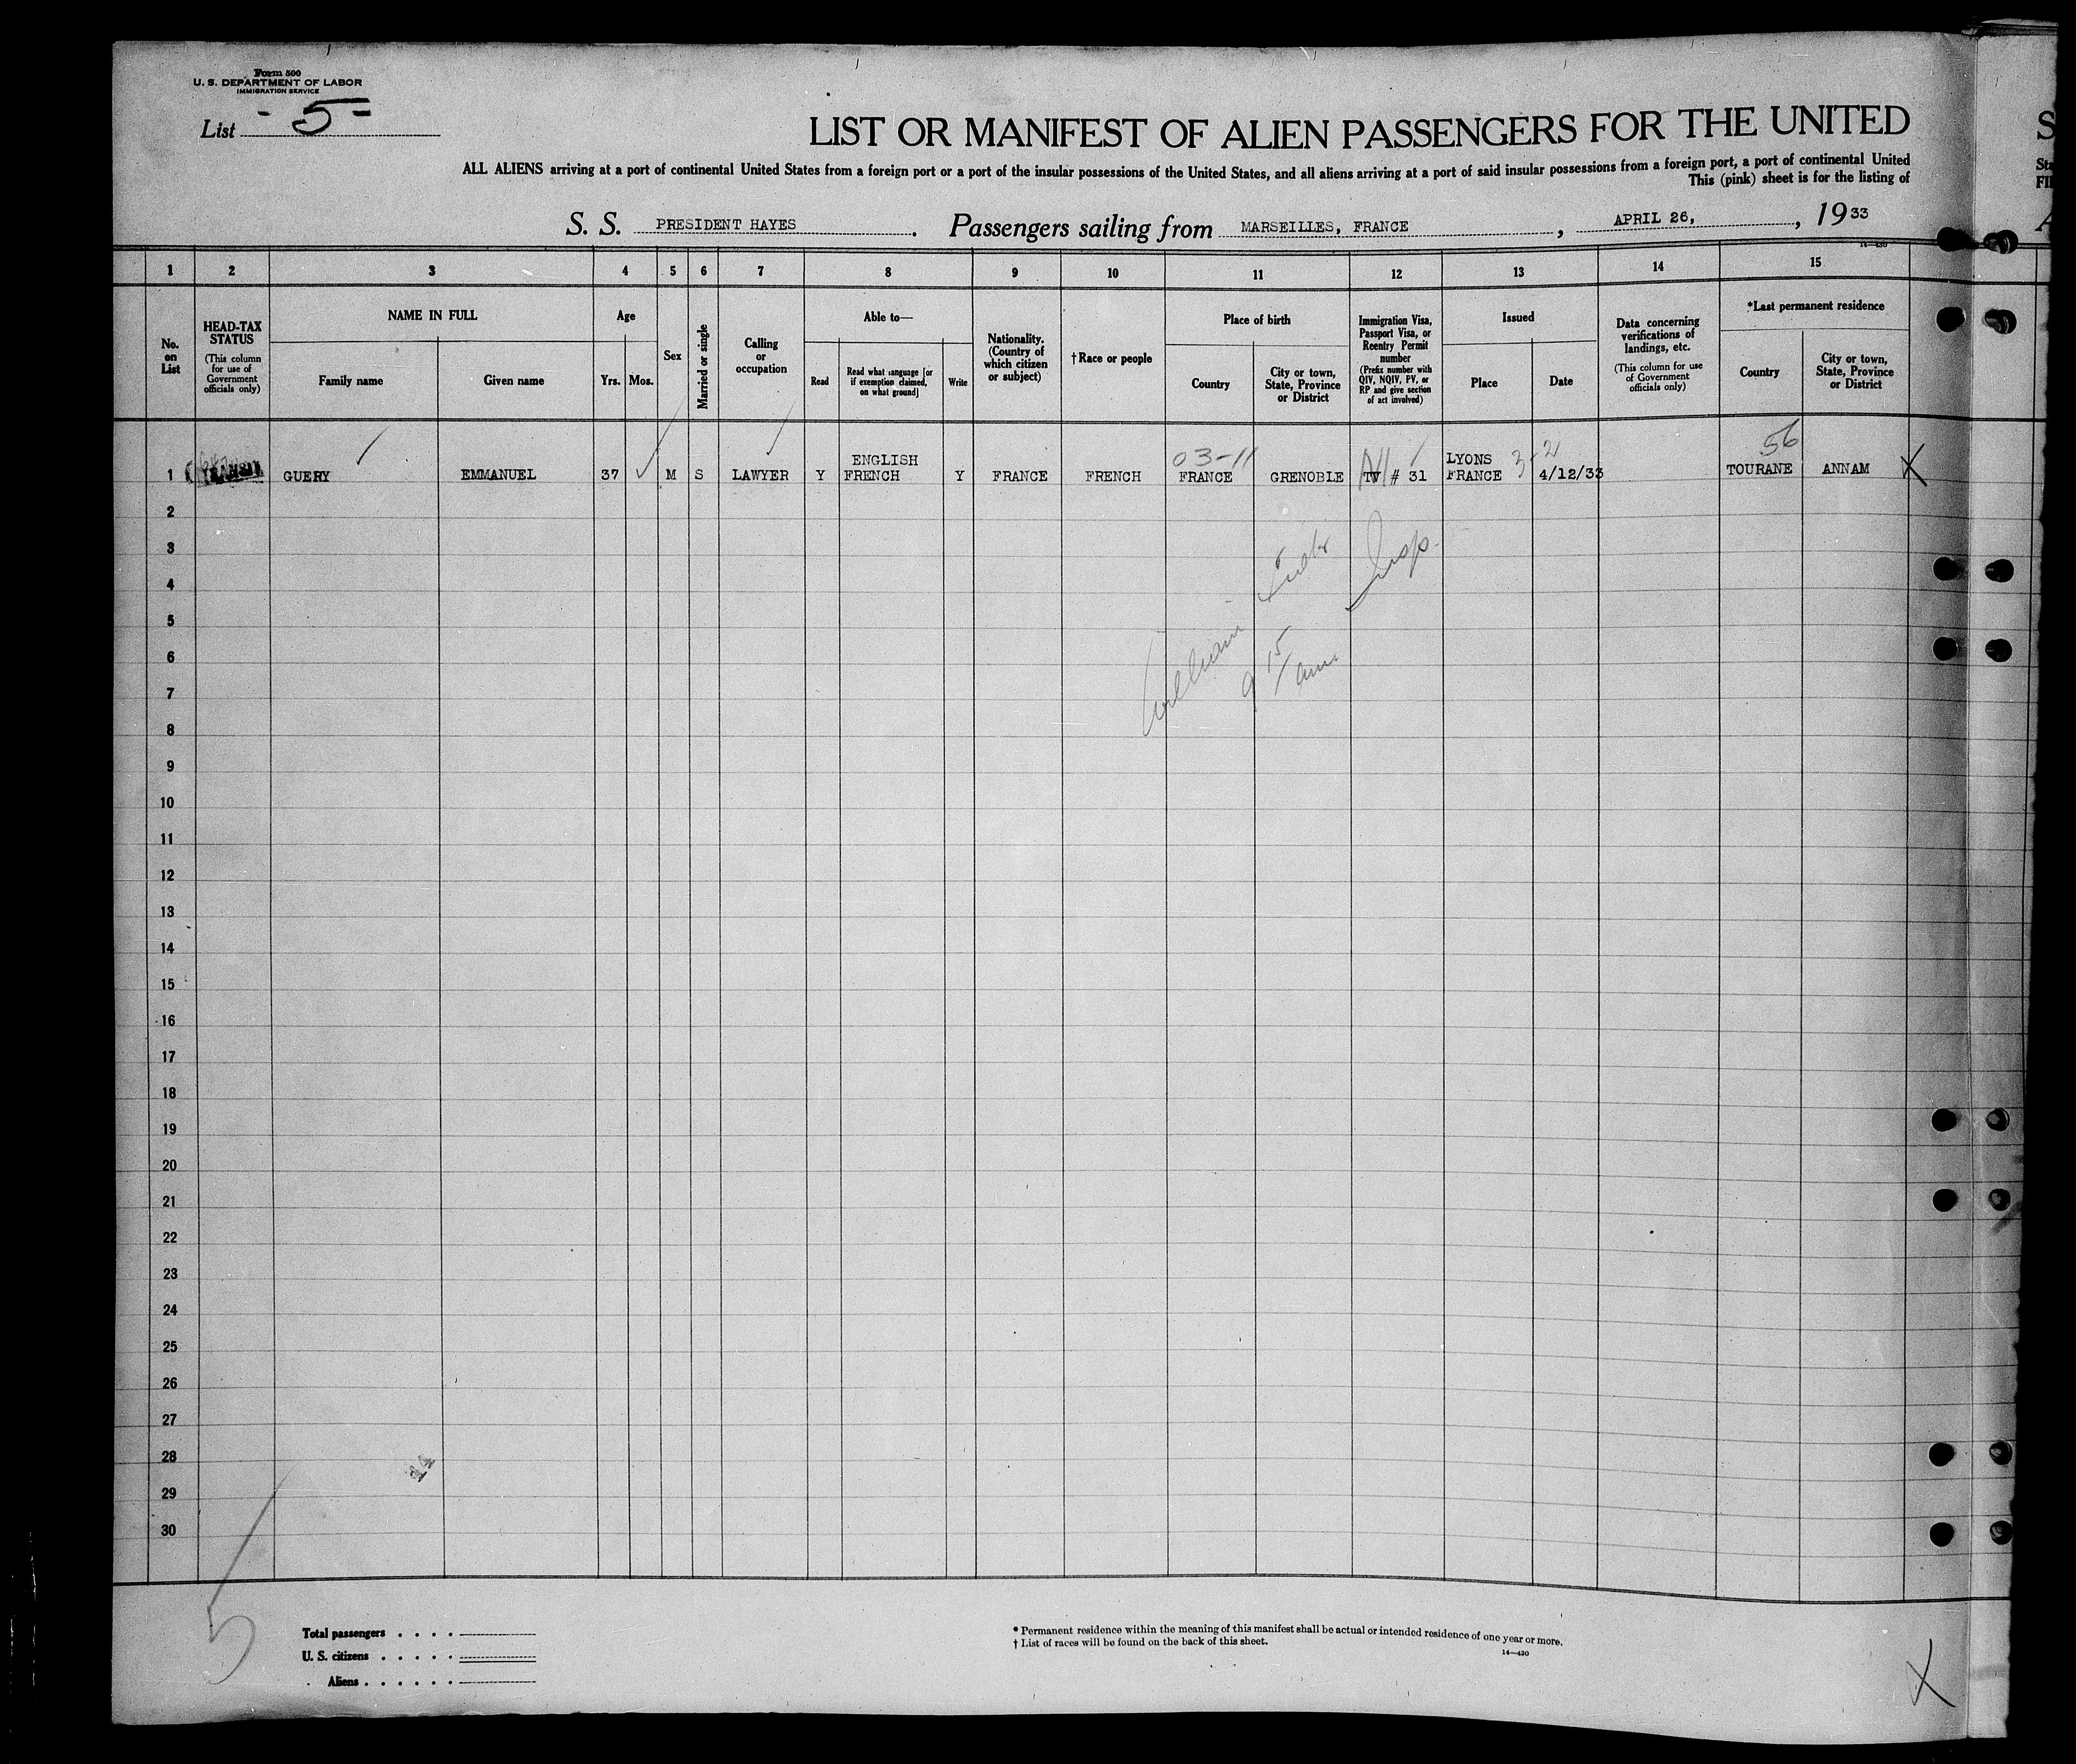 Form 500
U. S. DEPARTMENT OF LABOR
IMMIGRATION SERVICE
List - 5 -
LIST OR MANIFEST OF ALIEN PASSENGERS FOR THE UNITED
ALL ALIENS arriving at a port of continental United States from a foreign port or a port of the insular possessions of the United States, and all aliens arriving at a port of said insular possessions from a foreign port, a port of continental United
This (pink) sheet is for the listing of
S. S. PRESIDENT HAYES. Passengers sailing from MARSEILLES, FRANCE, APRIL 26, , 19 33
14—430
1 2 3 4 5 6 7 8 9 10 11 12 13 14 15
No. on List
HEAD-TAX STATUS
(This column for use of Government officials only)
NAME IN FULL
Family name
Given name
Age
Yrs. Mos.
Sex
Married or single
Calling or occupation
Able to—
Read
Read what language [or if exemption claimed, on what ground]
Write
Nationality. (Country of which citizen or subject)
† Race or people
Place of birth
Country
City or town, State, Province or District
Immigration Visa, Passport Visa, or Reentry Permit number
(Prefix number with QIV, NQIV, PV, or RP and give section of act involved)
Issued
Place
Date
Data concerning verifications of landings, etc.
(This column for use of Government officials only)
*Last permanent residence
Country
City or town, State, Province or District
03-11 3-2 56
ENGLISH LYONS
1 TRANSIT GUERY EMMANUEL 37 M S LAWYER Y FRENCH Y FRANCE FRENCH FRANCE GRENOBLE TV # 31 FRANCE 4/12/33 TOURANE ANNAM X
2
3
4
5
6
7
8
9
10
11
12
13
14
15
16
17
18
19
20
21
22
23
24
25
26
27
28
29
30
William Insp.
9 15 am.
14
5
Total passengers
U. S. citizens
Aliens
* Permanent residence within the meaning of this manifest shall be actual or intended residence of one year or more.
† List of races will be found on the back of this sheet.
14—430
X